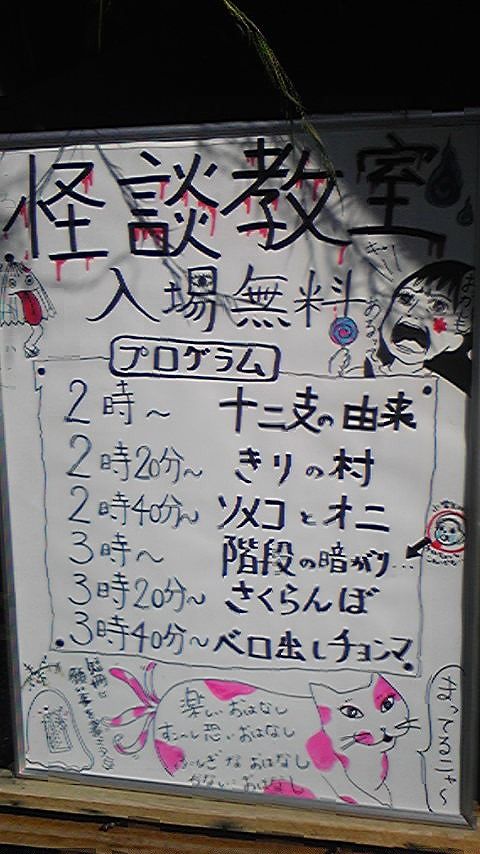 怪談教室
入場無料
キャー
おかしも
あるよ
プログラム
2時～ 十二支の由来
2時20分～ きりの村
2時40分～ ソメコとオニ
3時～ 階段の暗がり…
3時20分～ さくらんぼ
3時40分～ ベロ出しチョンマ
楽しいおはなし
すこーし恐いおはなし
ふしぎなおはなし
まってるニャ～